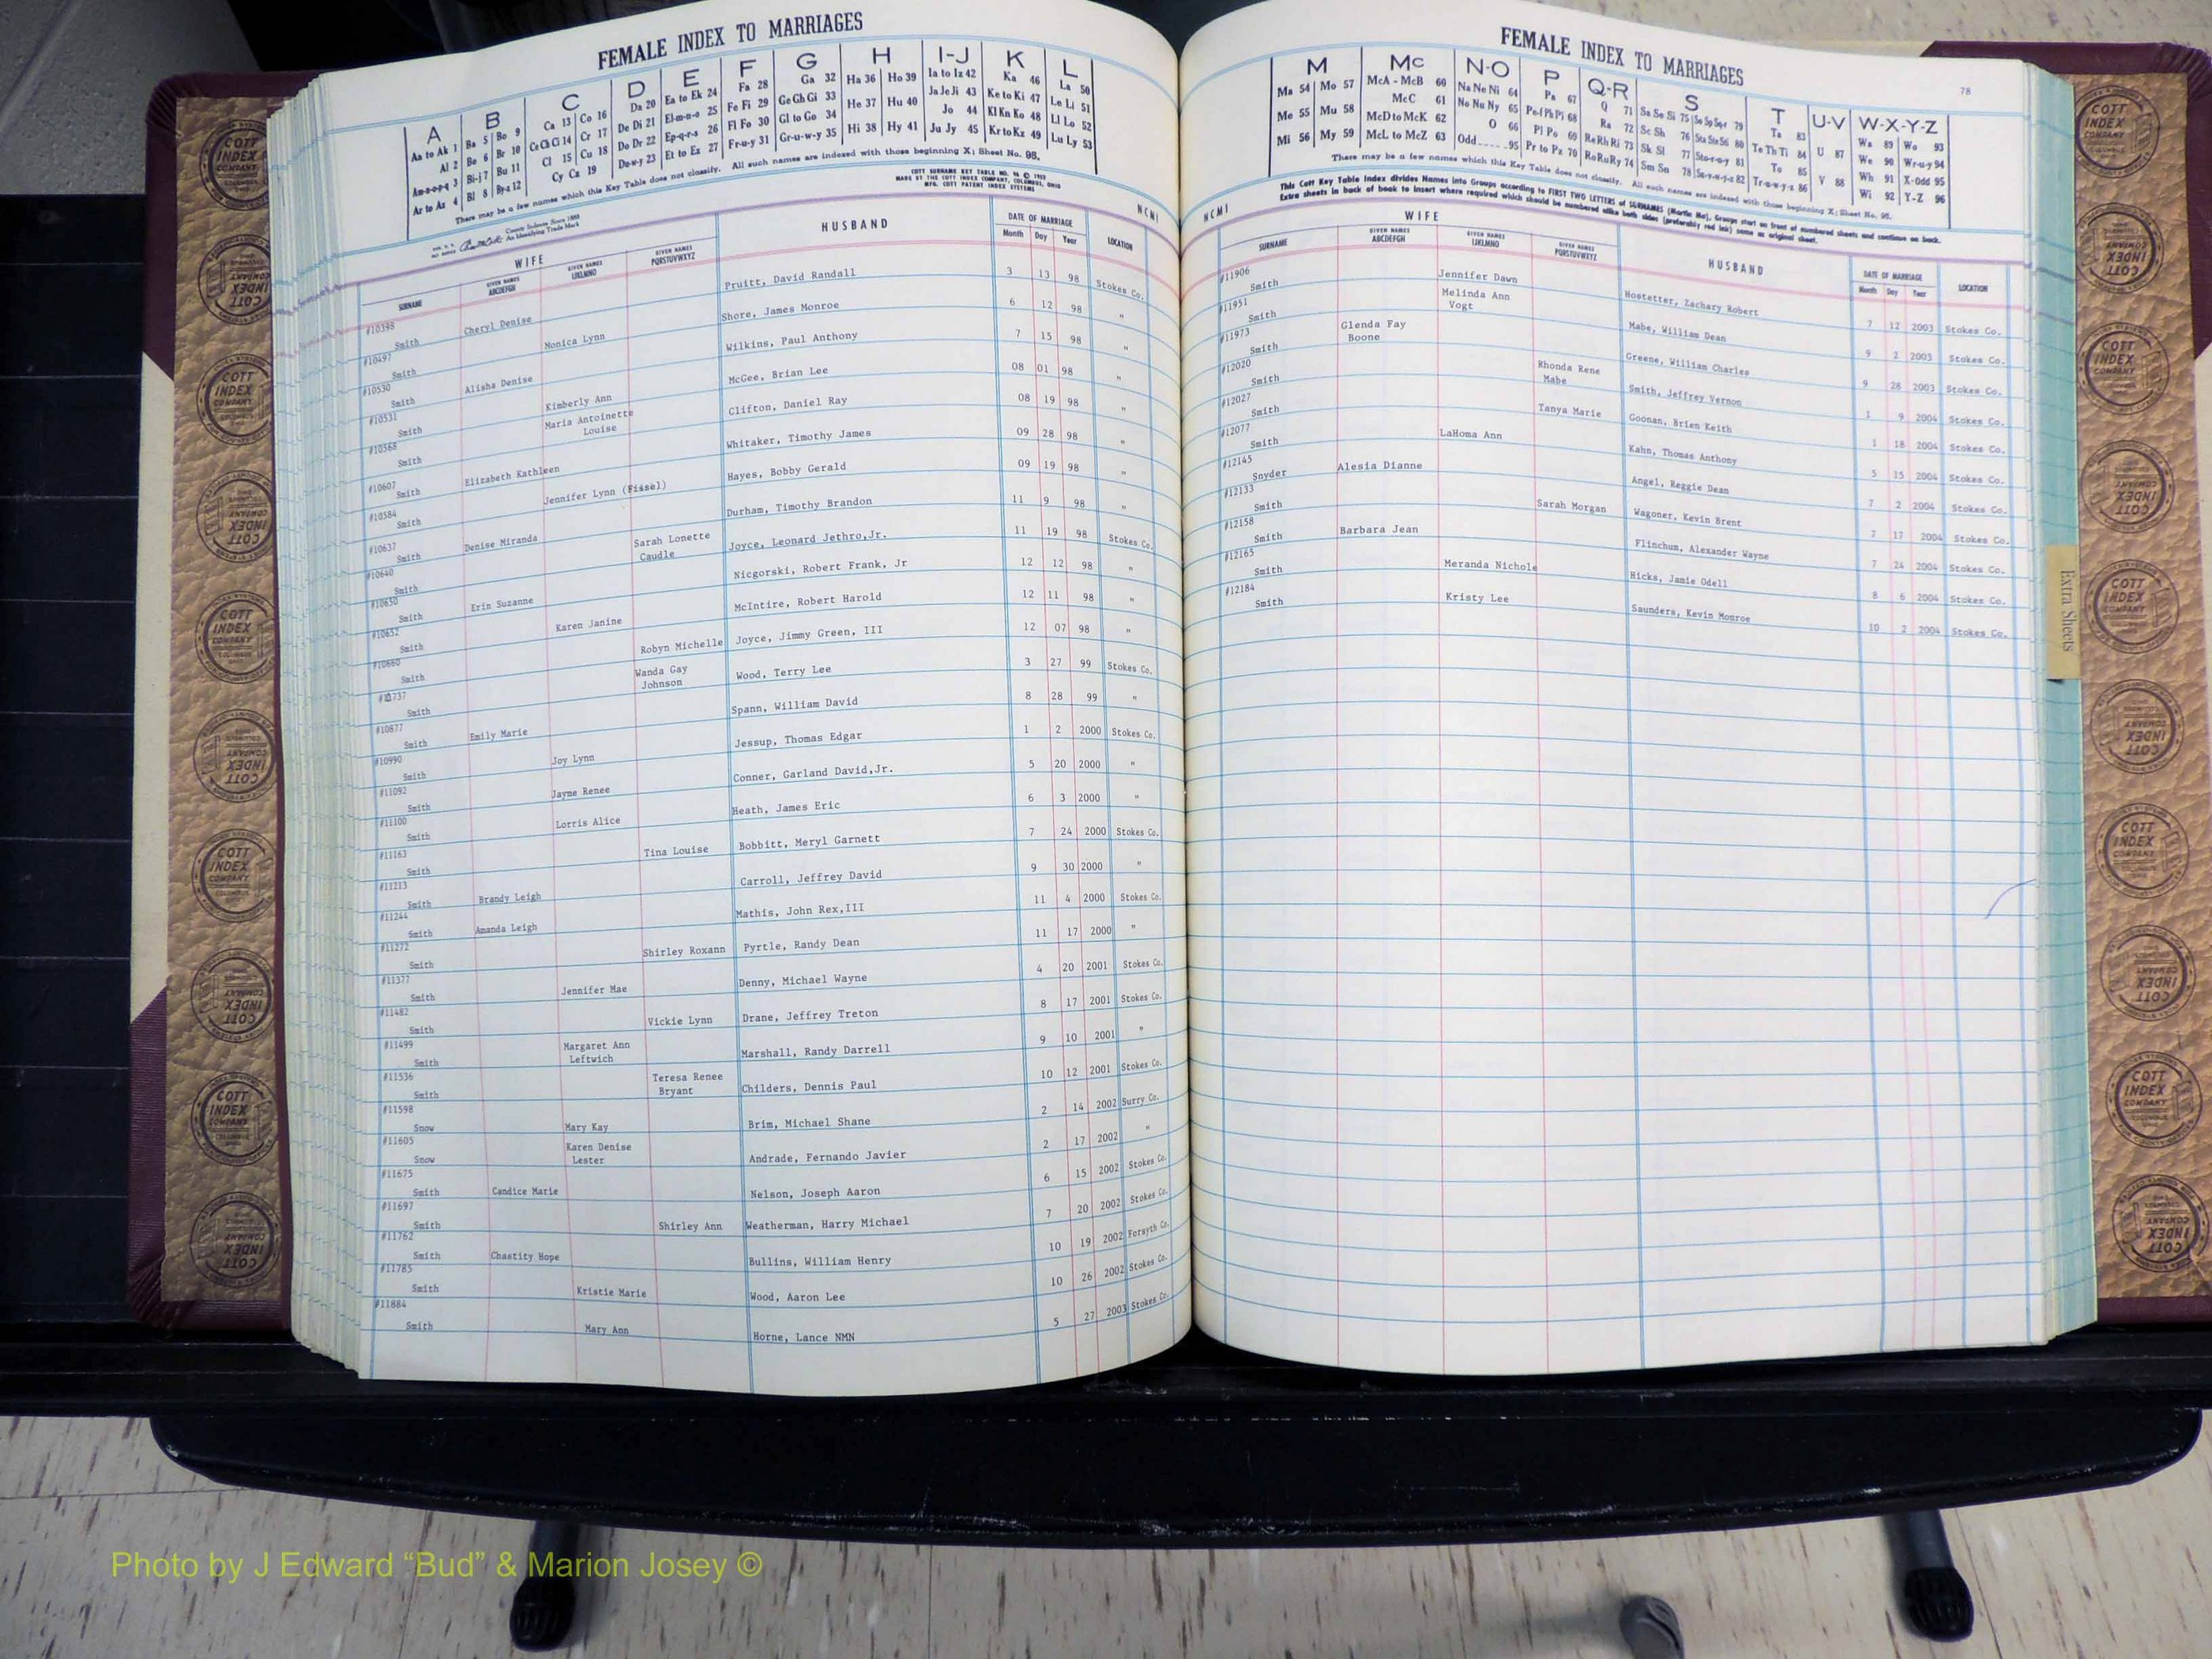 FEMALE INDEX TO MARRIAGES
A B C D E F G H I-J K L
Aa to Ak 1 Ba 5 Bo 9 Ca 13 Co 16 Da 20 Ea to Ek 24 Fa 28 Ga 32 Ha 36 Ho 39 Ia to Iz 42 Ka 46 La 50
Al 2 Be 6 Br 10 Ce Ch Ci 14 Cr 17 De Di 21 El-m-n-o 25 Fe Fi 29 Ge Gh Gi 33 He 37 Hu 40 Ja Je Ji 43 Ke to Ki 47 Le Li 51
Am-n-o-p-q 3 Bi-j 7 Bu 11 Cl 15 Cu 18 Do Dr 22 Ep-q-r-s 26 Fl Fo 30 Gl to Go 34 Hi 38 Hy 41 Jo 44 Kl Kn Ko 48 Ll Lo 52
Ar to Az 4 Bl 8 By-z 12 Cy Cz 19 Du-w-y 23 Et to Ez 27 Fr-u-y 31 Gr-u-w-y 35 Ju Jy 45 Kr to Kz 49 Lu Ly 53
There may be a few names which this Key Table does not classify. All such names are indexed with those beginning X; Sheet No. 98.
COTT SURNAME KEY TABLE NO. 96 © 1952
MADE BY THE COTT INDEX COMPANY, COLUMBUS, OHIO
MFG. COTT PATENT INDEX SYSTEMS
County Indexes Since 1888
An Identifying Trade Mark
NCMI
WIFE HUSBAND DATE OF MARRIAGE LOCATION
SURNAME GIVEN NAMES ABCDEFGH GIVEN NAMES IJKLMNO GIVEN NAMES PQRSTUVWXYZ Month Day Year
#10398 Smith Cheryl Denise Pruitt, David Randall 3 13 98 Stokes Co.
#10497 Smith Monica Lynn Shore, James Monroe 6 12 98 "
#10530 Smith Alisha Denise Wilkins, Paul Anthony 7 15 98 "
#10531 Smith Kimberly Ann McGee, Brian Lee 08 01 98 "
#10568 Smith Maria Antoinette Louise Clifton, Daniel Ray 08 19 98 "
#10607 Smith Elizabeth Kathleen Whitaker, Timothy James 09 28 98 "
#10584 Smith Jennifer Lynn (Fissel) Hayes, Bobby Gerald 09 19 98 "
#10637 Smith Denise Miranda Durham, Timothy Brandon 11 9 98 "
#10640 Smith Sarah Lonette Caudle Joyce, Leonard Jethro,Jr. 11 19 98 Stokes Co.
#10650 Smith Erin Suzanne Nicgorski, Robert Frank, Jr 12 12 98 "
#10652 Smith Karen Janine McIntire, Robert Harold 12 11 98 "
#10660 Smith Robyn Michelle Joyce, Jimmy Green, III 12 07 98 "
#10737 Smith Wanda Gay Johnson Wood, Terry Lee 3 27 99 Stokes Co.
#10877 Smith Emily Marie Spann, William David 8 28 99 "
#10990 Smith Joy Lynn Jessup, Thomas Edgar 1 2 2000 Stokes Co.
#11092 Smith Jayme Renee Conner, Garland David,Jr. 5 20 2000 "
#11100 Smith Lorris Alice Heath, James Eric 6 3 2000 "
#11163 Smith Tina Louise Bobbitt, Meryl Garnett 7 24 2000 Stokes Co.
#11213 Smith Brandy Leigh Carroll, Jeffrey David 9 30 2000 "
#11244 Smith Amanda Leigh Mathis, John Rex,III 11 4 2000 Stokes Co.
#11272 Smith Shirley Roxann Pyrtle, Randy Dean 11 17 2000 "
#11377 Smith Jennifer Mae Denny, Michael Wayne 4 20 2001 Stokes Co.
#11482 Smith Vickie Lynn Drane, Jeffrey Treton 8 17 2001 Stokes Co.
#11499 Smith Margaret Ann Leftwich Marshall, Randy Darrell 9 10 2001 "
#11536 Smith Teresa Renee Bryant Childers, Dennis Paul 10 12 2001 Stokes Co.
#11598 Snow Mary Kay Brim, Michael Shane 2 14 2002 Surry Co.
#11605 Snow Karen Denise Lester Andrade, Fernando Javier 2 17 2002 "
#11675 Smith Candice Marie Nelson, Joseph Aaron 6 15 2002 Stokes Co.
#11697 Smith Shirley Ann Weatherman, Harry Michael 7 20 2002 Stokes Co.
#11762 Smith Chastity Hope Bullins, William Henry 10 19 2002 Forsyth Co.
#11785 Smith Kristie Marie Wood, Aaron Lee 10 26 2002 Stokes Co.
#11884 Smith Mary Ann Horne, Lance NMN 5 27 2003 Stokes Co.
FEMALE INDEX TO MARRIAGES
78
M Mc N-O P Q-R S T U-V W-X-Y-Z
Ma 54 Mo 57 McA - McB 60 Na Ne Ni 64 Pa 67 Q 71 Sa Se Si 75 So Sp Sq-r 79 Ta 83 Wa 89 Wo 93
Me 55 Mu 58 McC 61 No Nu Ny 65 Pe-f Ph Pi 68 Ra 72 Sc Sh 76 Sta Ste Sti 80 Te Th Ti 84 U 87 We 90 Wr-u-y 94
Mi 56 My 59 McD to McK 62 O 66 Pl Po 69 Re Rh Ri 73 Sk Sl 77 Sto-r-u-y 81 To 85 Wh 91 X-Odd 95
McL to McZ 63 Odd 95 Pr to Pz 70 Ro Ru Ry 74 Sm Sn 78 Su-v-w-y-z 82 Tr-u-w-y-z 86 V 88 Wi 92 Y-Z 96
There may be a few names which this Key Table does not classify. All such names are indexed with those beginning X; Sheet No. 98.
This Cott Key Table Index divides Names into Groups according to FIRST TWO LETTERS of SURNAMES (Martin Ma), Groups start on front of numbered sheets and continue on back.
Extra sheets in back of book to insert where required which should be numbered alike both sides (preferably red ink) same as original sheet.
NCMI
WIFE HUSBAND DATE OF MARRIAGE LOCATION
SURNAME GIVEN NAMES ABCDEFGH GIVEN NAMES IJKLMNO GIVEN NAMES PQRSTUVWXYZ Month Day Year
#11906 Smith Jennifer Dawn Hostetter, Zachary Robert 7 12 2003 Stokes Co.
#11951 Smith Melinda Ann Vogt Mabe, William Dean 9 2 2003 Stokes Co.
#11973 Smith Glenda Fay Boone Greene, William Charles 9 28 2003 Stokes Co.
#12020 Smith Rhonda Rene Mabe Smith, Jeffrey Vernon 1 9 2004 Stokes Co.
#12027 Smith Tanya Marie Goonan, Brien Keith 1 18 2004 Stokes Co.
#12077 Smith LaHoma Ann Kahn, Thomas Anthony 5 15 2004 Stokes Co.
#12145 Snyder Alesia Dianne Angel, Reggie Dean 7 2 2004 Stokes Co.
#12133 Smith Sarah Morgan Wagoner, Kevin Brent 7 17 2004 Stokes Co.
#12158 Smith Barbara Jean Flinchum, Alexander Wayne 7 24 2004 Stokes Co.
#12165 Smith Meranda Nichole Hicks, Jamie Odell 8 6 2004 Stokes Co.
#12184 Smith Kristy Lee Saunders, Kevin Monroe 10 2 2004 Stokes Co.
Extra Sheets
COTT INDEX COMPANY
Photo by J Edward “Bud” & Marion Josey ©